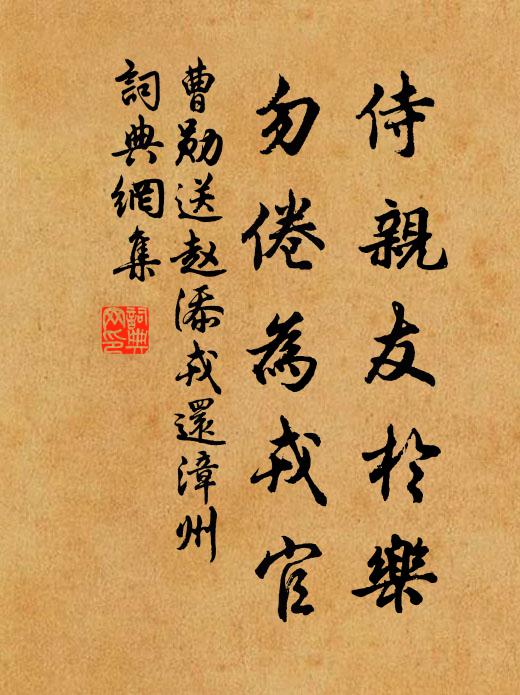 侍親友於樂
勿倦為戎官
曹勛送赵添戎還漳州
詞典網集
詞典網印